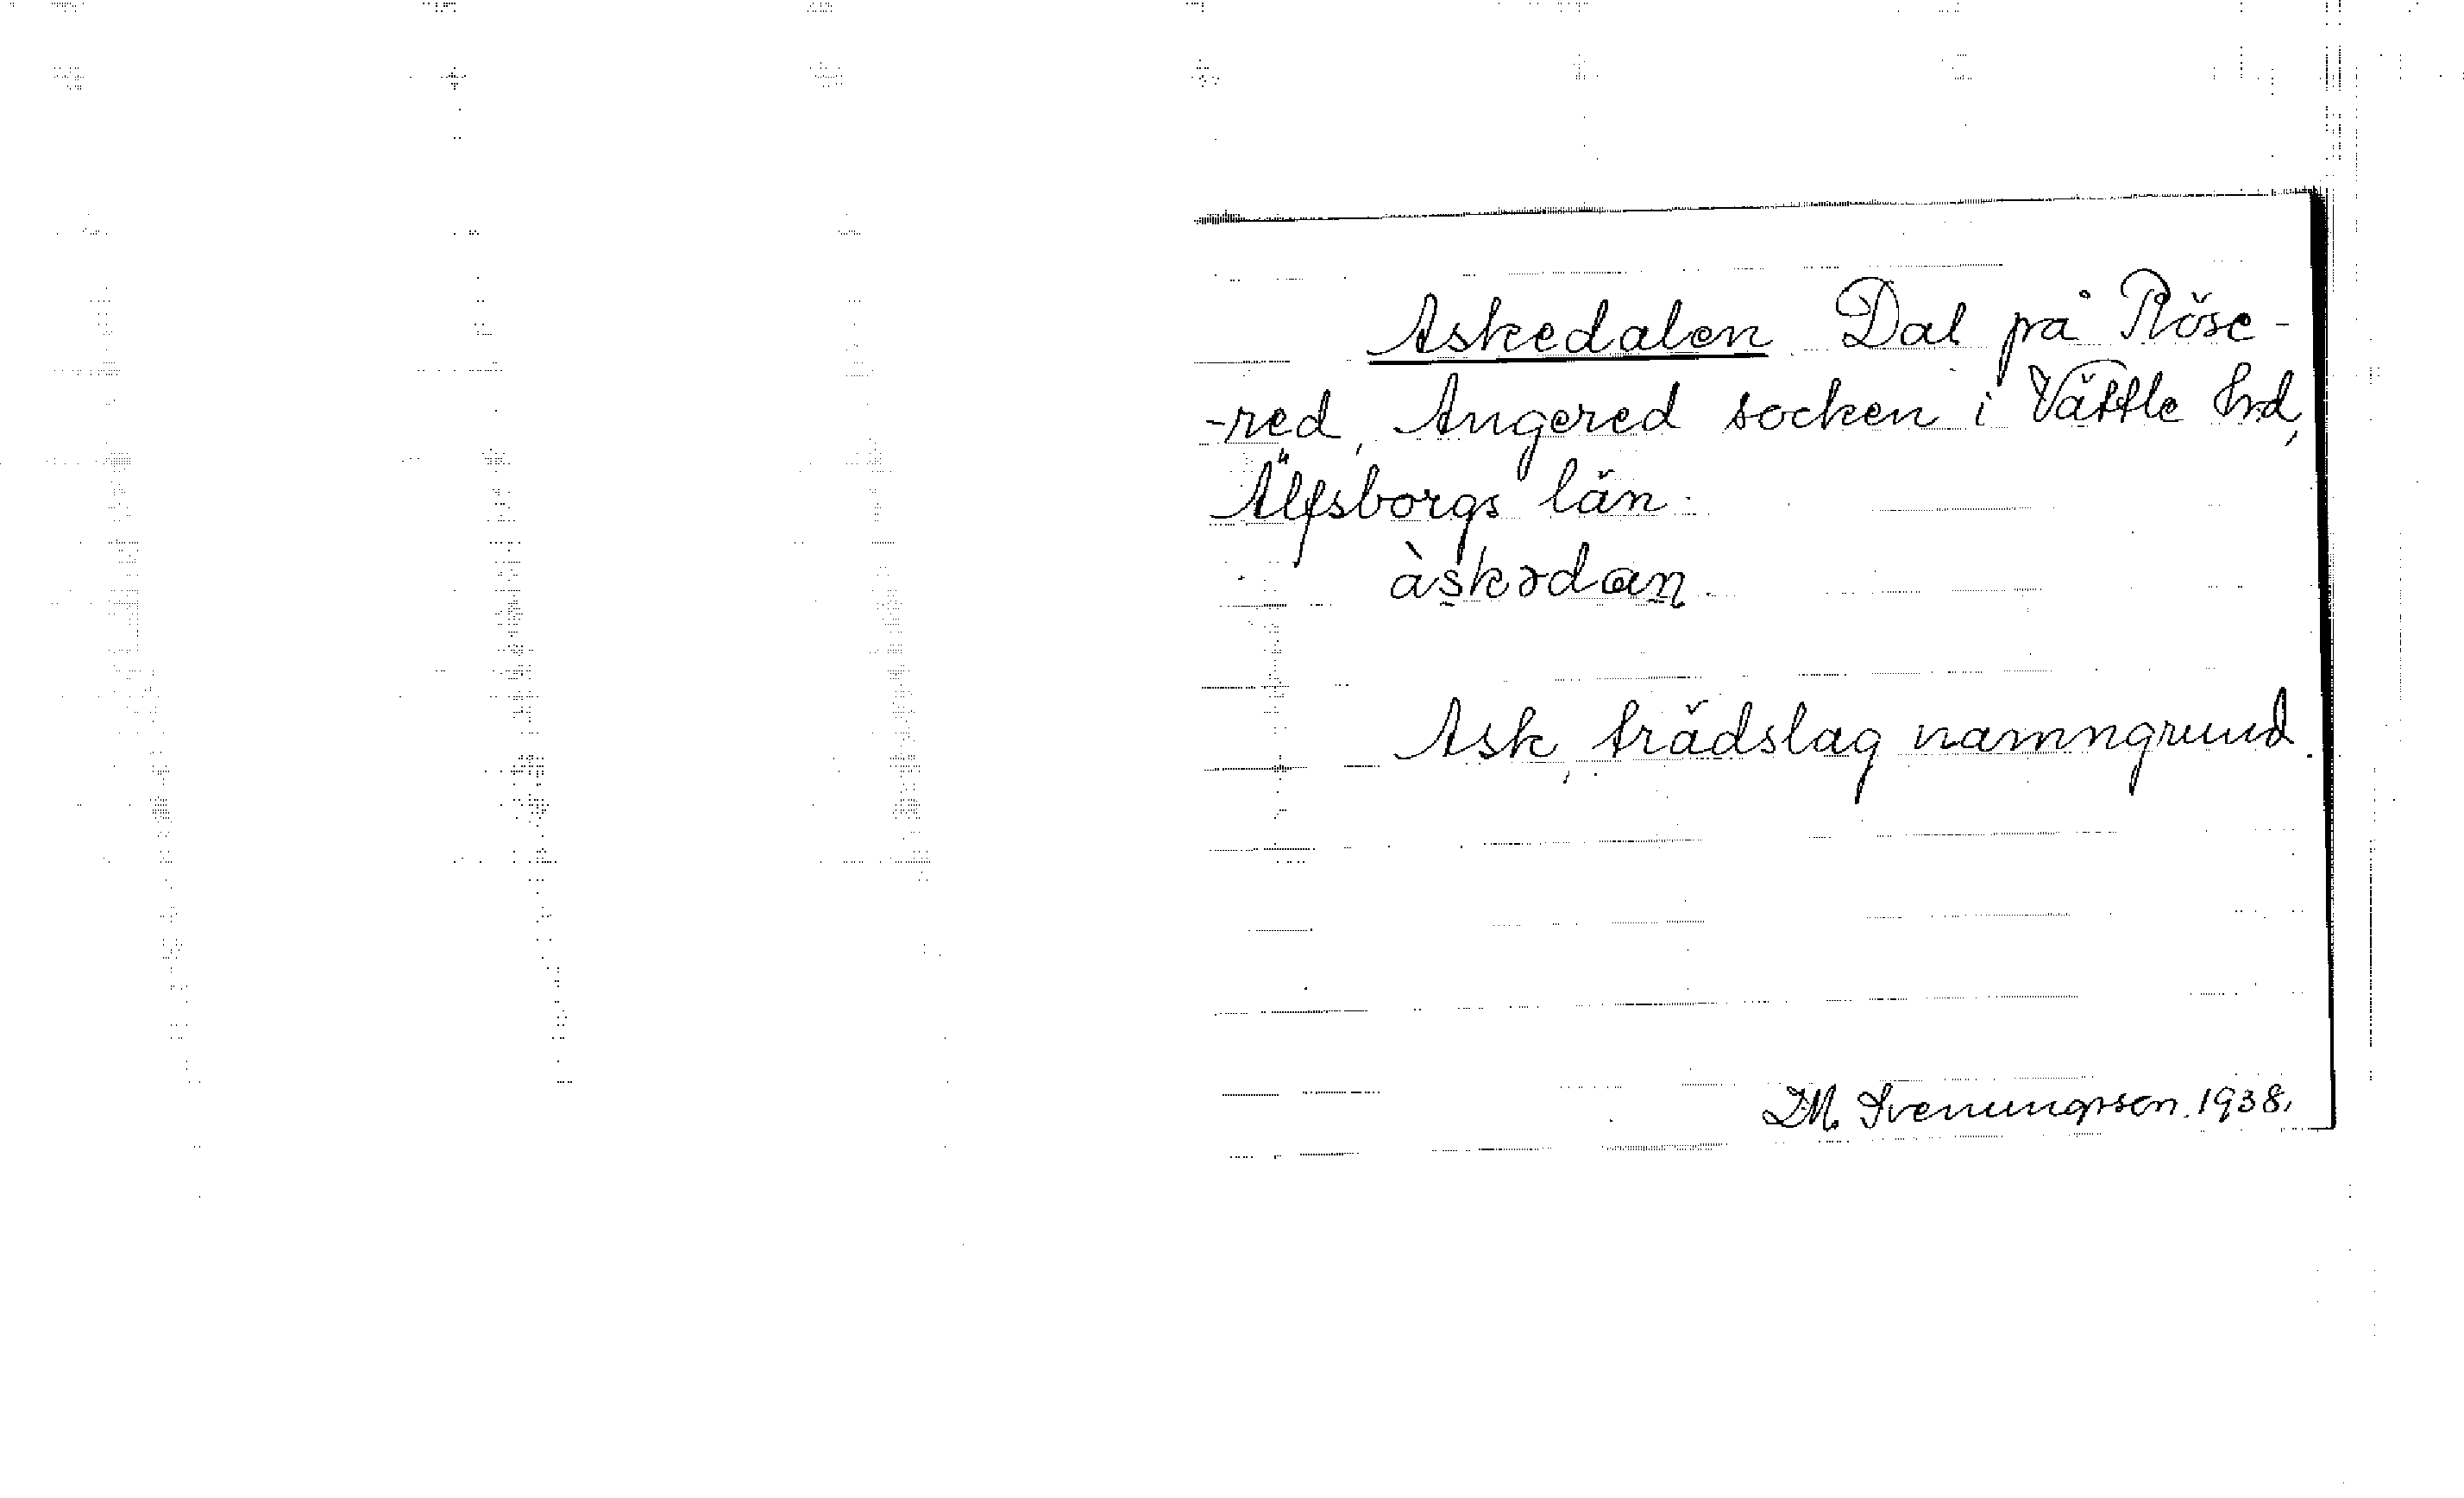 Askedalen Dal på Röse-
-red, Angered socken i Vättle hrd,
Älfsborgs län.
àskədan.
Ask, trädslag namngrund.
D.M. Svenungsson. 1938.